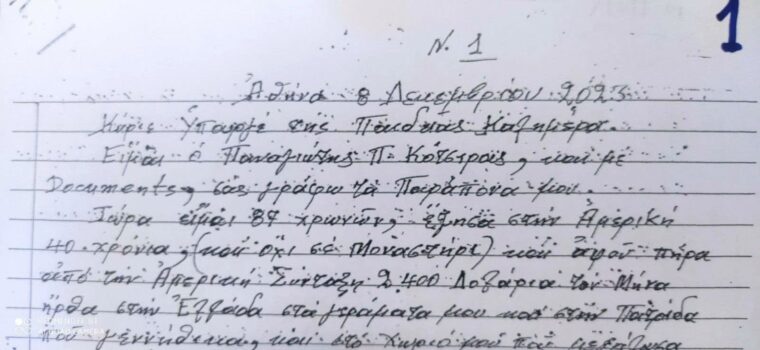 1
Ν. 1
Ἀθήνα 8 Δεκεμβρίου 2023
Κύριε Ὑπουργέ τῆς Παιδείας
Εἶμαι ὁ Παναγιώτης Π. Κότσιρας, καί με
Documents, σάς γράφω τά Παράπονα μου.
Τώρα εἶμαι 87 χρωνῶν, ἔζησα στήν Ἀμερική
40 χρόνια, (καί ὄχι σέ Μοναστήρι) καί ἀφοῦ πῆρα
ἀπό τήν Ἀμερική Σύνταξη 2400 Δολάρια τόν Μῆνα
ἦρθα στήν Ἑλλάδα στά γεράματα μου καί στήν Πατρίδα
πού γεννήθηκα, καί στό χωριό μου πού